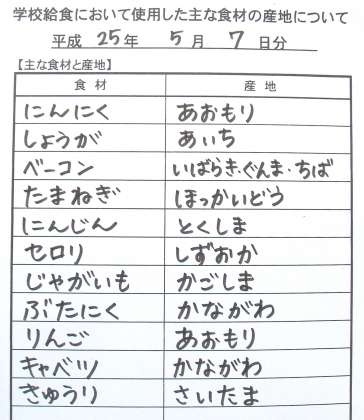 学校給食において使用した主な食材の産地について
平成 25年 5月 7日分
【主な食材と産地】
食材 産地
にんにく あおもり
しょうが あいち
ベーコン いばらき・ぐんま・ちば
たまねぎ ほっかいどう
にんじん とくしま
セロリ しずおか
じゃがいも かごしま
ぶたにく かながわ
りんご あおもり
キャベツ かながわ
きゅうり さいたま